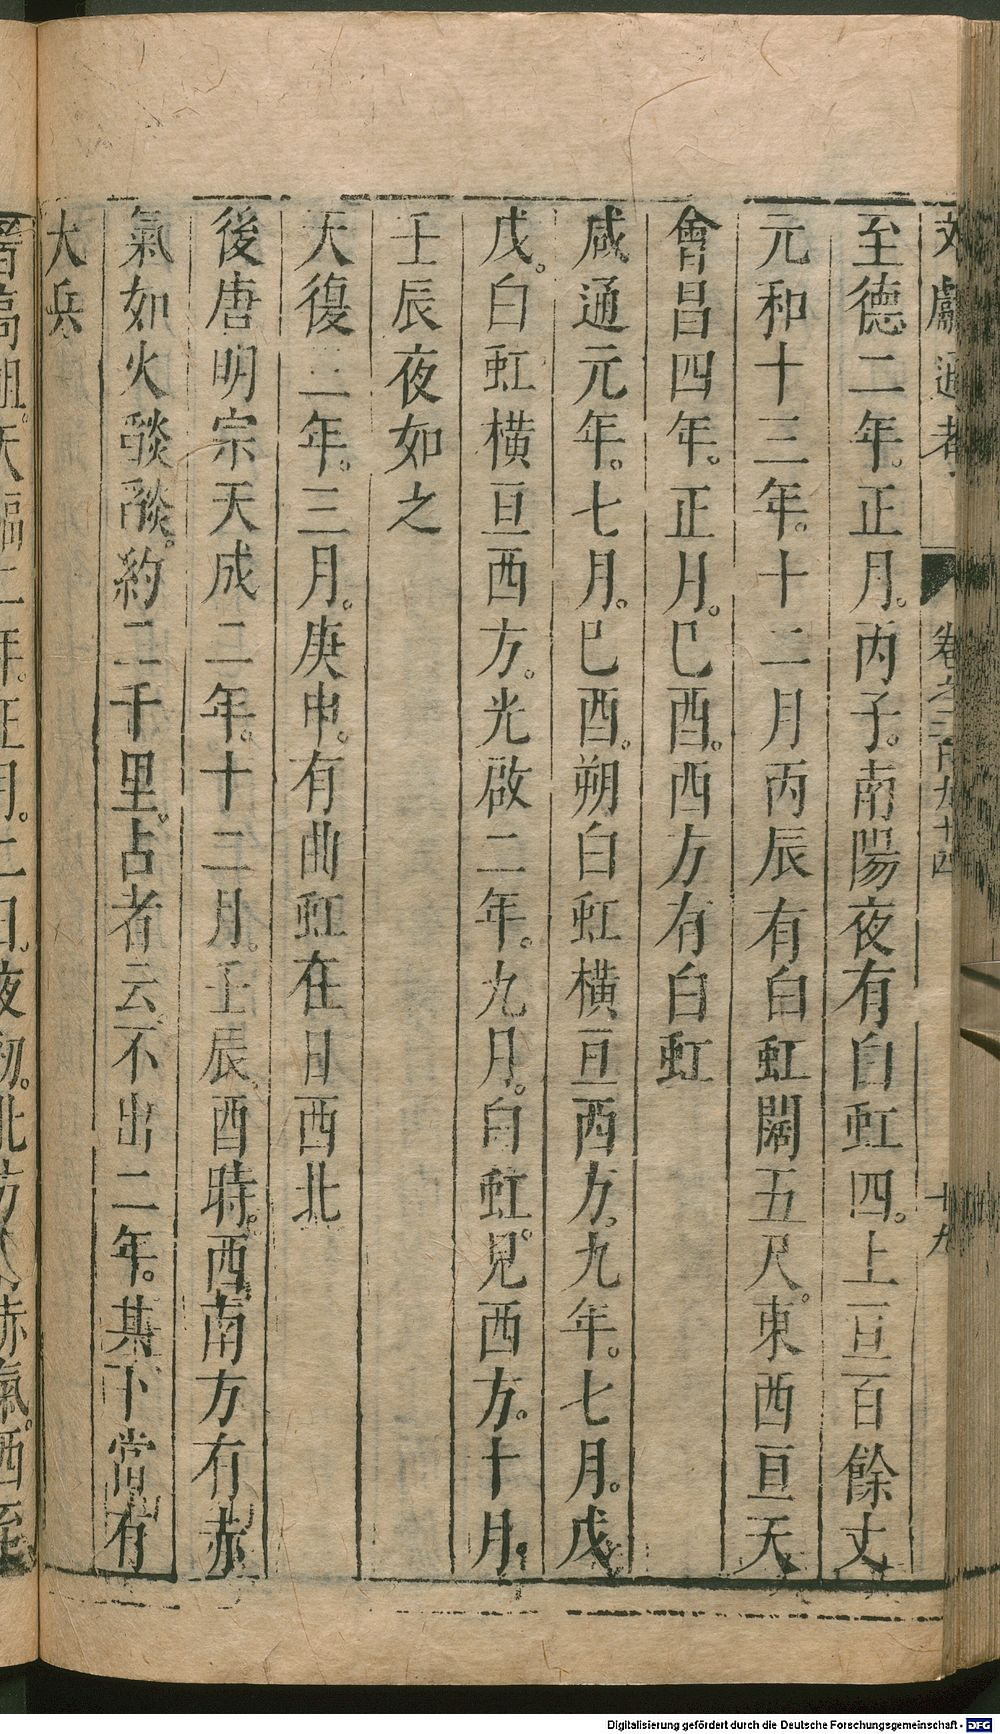 文獻通考 卷之二百九十四 十九
至德二年。正月。丙子。南陽夜有白虹四。上亘百餘丈
元和十三年。十二月丙辰有白虹闊五尺。東西亘天
會昌四年。正月。巳酉。西方有白虹
咸通元年。七月。巳酉。朔白虹橫亘西方。九年。七月。戊
戌。白虹橫亘西方。光啟二年。九月。白虹。見西方。十月。
壬辰夜如之
天復三年。三月。庚申。有曲虹在日西北
後唐明宗天成二年。十二月。壬辰。酉時。西南方有赤
氣如火燄燄。約二千里。占者云不出二年。其下當有
大兵
晉高祖。天福二年。正月。二日。夜初。北方有赤氣。西至
Digitalisierung gefördert durch die Deutsche Forschungsgemeinschaft - DFG